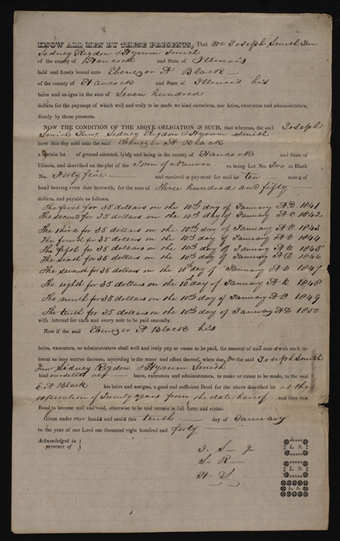 KNOW ALL MEN BY THESE PRESENTS, That We Joseph Smith Jun
Sidney Rigdon & Hyrum Smith
of the county of Hancock and State of Illinois
held and firmly bound unto Ebenezer A Black
of the county of Hancock and State of Illinois his
heirs and assigns in the sum of Seven hundred
dollars for the payment of which well and truly to be made we bind ourselves, our heirs, executors and administrators,
firmly by these presents.
NOW THE CONDITION OF THE ABOVE OBLIGATION IS SUCH, that whereas, the said Joseph
Smith Jun Sidney Rigdon & Hyrum Smith
have this day sold unto the said Ebenezer A Black
a certain lot of ground situated, lying and being in the county of Hancock and State of
Illinois, and described on the plat of the Town of Nauvoo as being Lot No. Two in Block
No. Forty five and received in payment for said lot ten notes of
hand bearing even date herewith, for the sum of Three hundred and fifty
dollars, and payable as follows.
The first for 35 dollars on the 10th day of January A.D. 1841
The second for 35 dollars on the 10th day of January A.D. 1842
The third for 35 dollars on the 10th day of January A.D. 1843
The fourth for 35 dollars on the 10th day of January A.D. 1844
The fifth for 35 dollars on the 10th day of January A.D. 1845
The sixth for 35 dollars on the 10th day of January A.D. 1846
The seventh for 35 dollars on the 10th day of January A.D. 1847
The eighth for 35 dollars on the 10 day of January A.D. 1848
The ninth for 35 dollars on the 10th day of January A.D. 1849
The tenth for 35 dollars on the 10th day of January A.D. 1850
with interest for each and every note to be paid annually.
Now if the said Ebenezer A Black his
heirs, executors, or administrators shall well and truly pay or cause to be paid, the amount of said notes with interest as
may accrue thereon, according to the tenor and effect thereof, when due, We the said Joseph Smith
Jun Sidney Rigdon & Hyrum Smith
heirs, executors and administrators, to make or cause to be made, to the said
E A Black his heirs and assigns, a good and sufficient Deed for the above described lot at the
expiration of Twenty years from the date hereof and then this
Bond to become null and void, otherwise to be and remain in full force and virtue.
Given under our hands and seals this tenth day of January
in the year of our Lord one thousand eight hundred and forty
Acknowledged in
presence of
J. S. J
S. R
H. S
L. S.
L. S.
L. S.